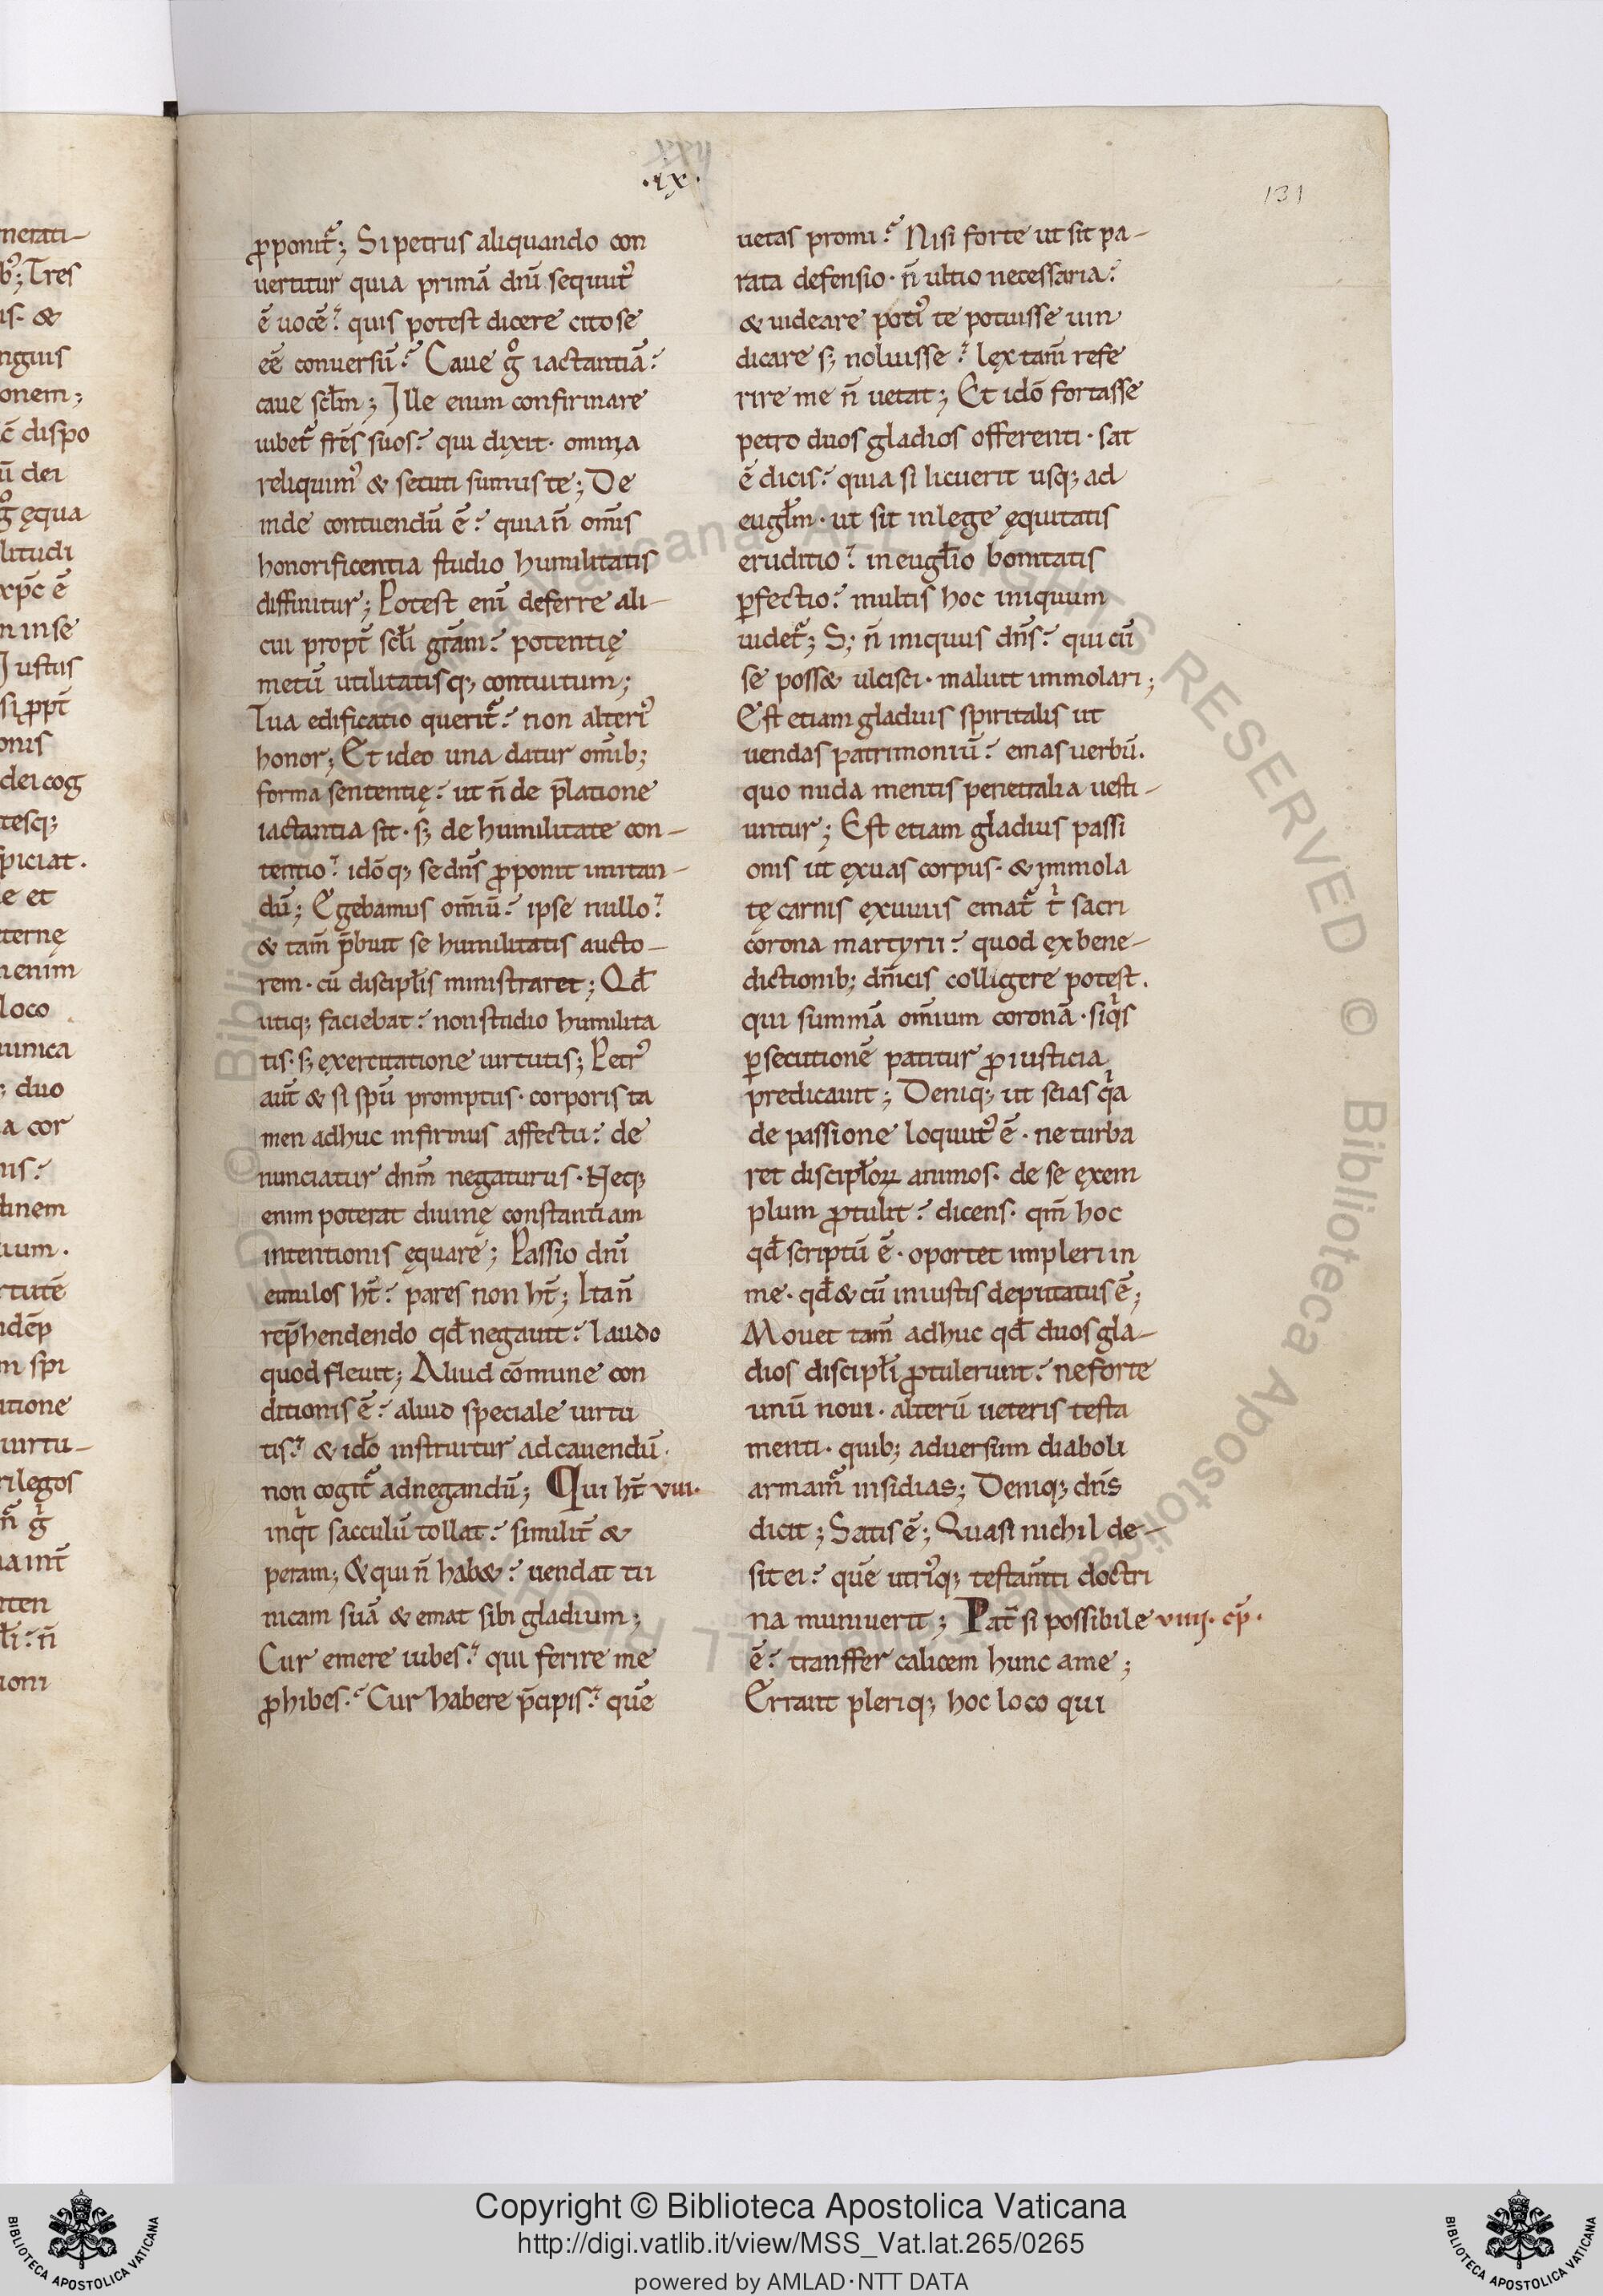 xxij
·ix·
131
nerati-
b᾿; Tres
us· &
ngius
onem;
c̄ dispo
ū dei
g̊ ęqua
litudi
xp̄c ē
n in se
Justus
si ꝓpt̄
onis
dei cog
tesq;
spiciat.
e et
ternę
enim
loco
unica
; duo
a cor
nis?
dinem
uium.
rtutē
idēp
m spi
utione
uirtu-
rilegos
n̄ gͥ
na int̄
iten
l̄i? n̄
ioni
ꝓponit᷑; Si petrus aliquando con
uertitur quia primā dn̄m sequut᾿
ē uocē? quis potest dicere cito se
eē conuersū? Caue g̊ iactantiā?
caue scl̄m; Ille enim confirmare
iubet᷑ fr̄es suos? qui dixit· omnia
reliquim᾿ & secuti sumus te; De
inde contuendū ē? quia n̄ om̄is
honorificentia studio humilitatis
diffinitur; Potest eni᷑ deferre ali-
cui propt̄ scl̄i gr̄am? potentię
metū utilitatisq; contuitum;
Tua edificatio querit᷑? non alteri᾿
honor; Et ideo una datur om̄ib;
forma sententię? ut n̄ de p̄latione
iactantia sit· s; de humilitate con-
tentio? idōq; se dn̄s ꝓponit imitan-
dū; Egebamus om̄iū? ipse nullo?
& tam̄ p̄buit se humilitatis aucto-
rem· cū discipl̄is ministraret; Qd̄
utiq; faciebat? non studio humilita
tis· s; exercitatione uirtutis; Petr᾿
aut̄ & si spū promptus· corporis ta
men adhuc infirmus affectu? de
nunciatur dn̄m negaturus· Neq;
enim poterat diuinę constantiam
intentionis ęquare; Passio dn̄i
emulos ht̄? pares non ht̄; Ita n̄
rep̄hendendo qd̄ negauit? laudo
quod fleuit; Aliud cōmune con
ditionis ē? aliud speciale uirtu
tis? & idō instruitur ad cauendū·
non cogit᷑ ad negandū; Qui ht̄ viii·
inqͥt sacculū tollat? similit̄ &
peram; & qui n̄ hab&? uendat tu
nicam suā & emat sibi gladium;
Cur emere iubes? qui ferire me
ꝓhibes? Cur habere p̄cipis? quē
uetas promi? Nisi forte ut sit pa-
rata defensio· n̄ ultio necessaria?
& uideare poti᾿ te potuisse uin
dicare s; noluisse? lęx tam̄ refe
rire me n̄ uetat; Et idō fortasse
petro duos gladios offerenti· sat
ē dicis? quia si licuerit usq; ad
eugl̄m· ut sit in lege ęquitatis
eruditio? in eugl̄io bonitatis
ꝑfectio? multis hoc iniquum
uidet᷑; S; n̄ iniquus dn̄s? qui cū
se poss& ulcisci· maluit immolari;
Est etiam gladius spiritalis ut
uendas patrimoniū? emas uerbū.
quo nuda mentis penetralia uesti-
untur; Est etiam gladius passi
onis ut ęxuas corpus· & immola
tę carnis ęxuuiis emat᷑ tͥ sacri
corona martyrii? quod ęx bene-
dictionib; dn̄icis colligere potest.
qui summā om̄ium coronā· siqͥs
ꝑsecutionē patitur ꝓ iusticia
predicauit; Deniq; ut scias qͥa
de passione loquut᾿ ē· ne turba
ret discipl̄oꝝ animos· de se ęxem
plum ꝓtulit? dicens· qm̄ hoc
qd̄ scriptū ē· oportet impleri in
me· qd̄ & cū iniustis deputatus ē;
Mouet tam̄ adhuc qd̄ duos gla-
dios discipl̄i ꝓtulerunt? ne forte
unū noui· alterū ueteris testa
menti· quib; aduersum diaboli
armam᷑ insidias; Deniq; dn̄s
dicit; Satis ē; Quasi nichil de-
sit ei? quē utri᾿q; testam̄ti doctri
na muniuerit; Pat̄ si possibile viiij· cp̄·
ē? transfer calicem hunc a me;
Errant pleriq; hoc loco qui
Copyright © Biblioteca Apostolica Vaticana
http://digi.vatlib.it/view/MSS_Vat.lat.265/0265
powered by AMLAD·NTT DATA
BIBLIOTECA APOSTOLICA VATICANA
BIBLIOTECA APOSTOLICA VATICANA